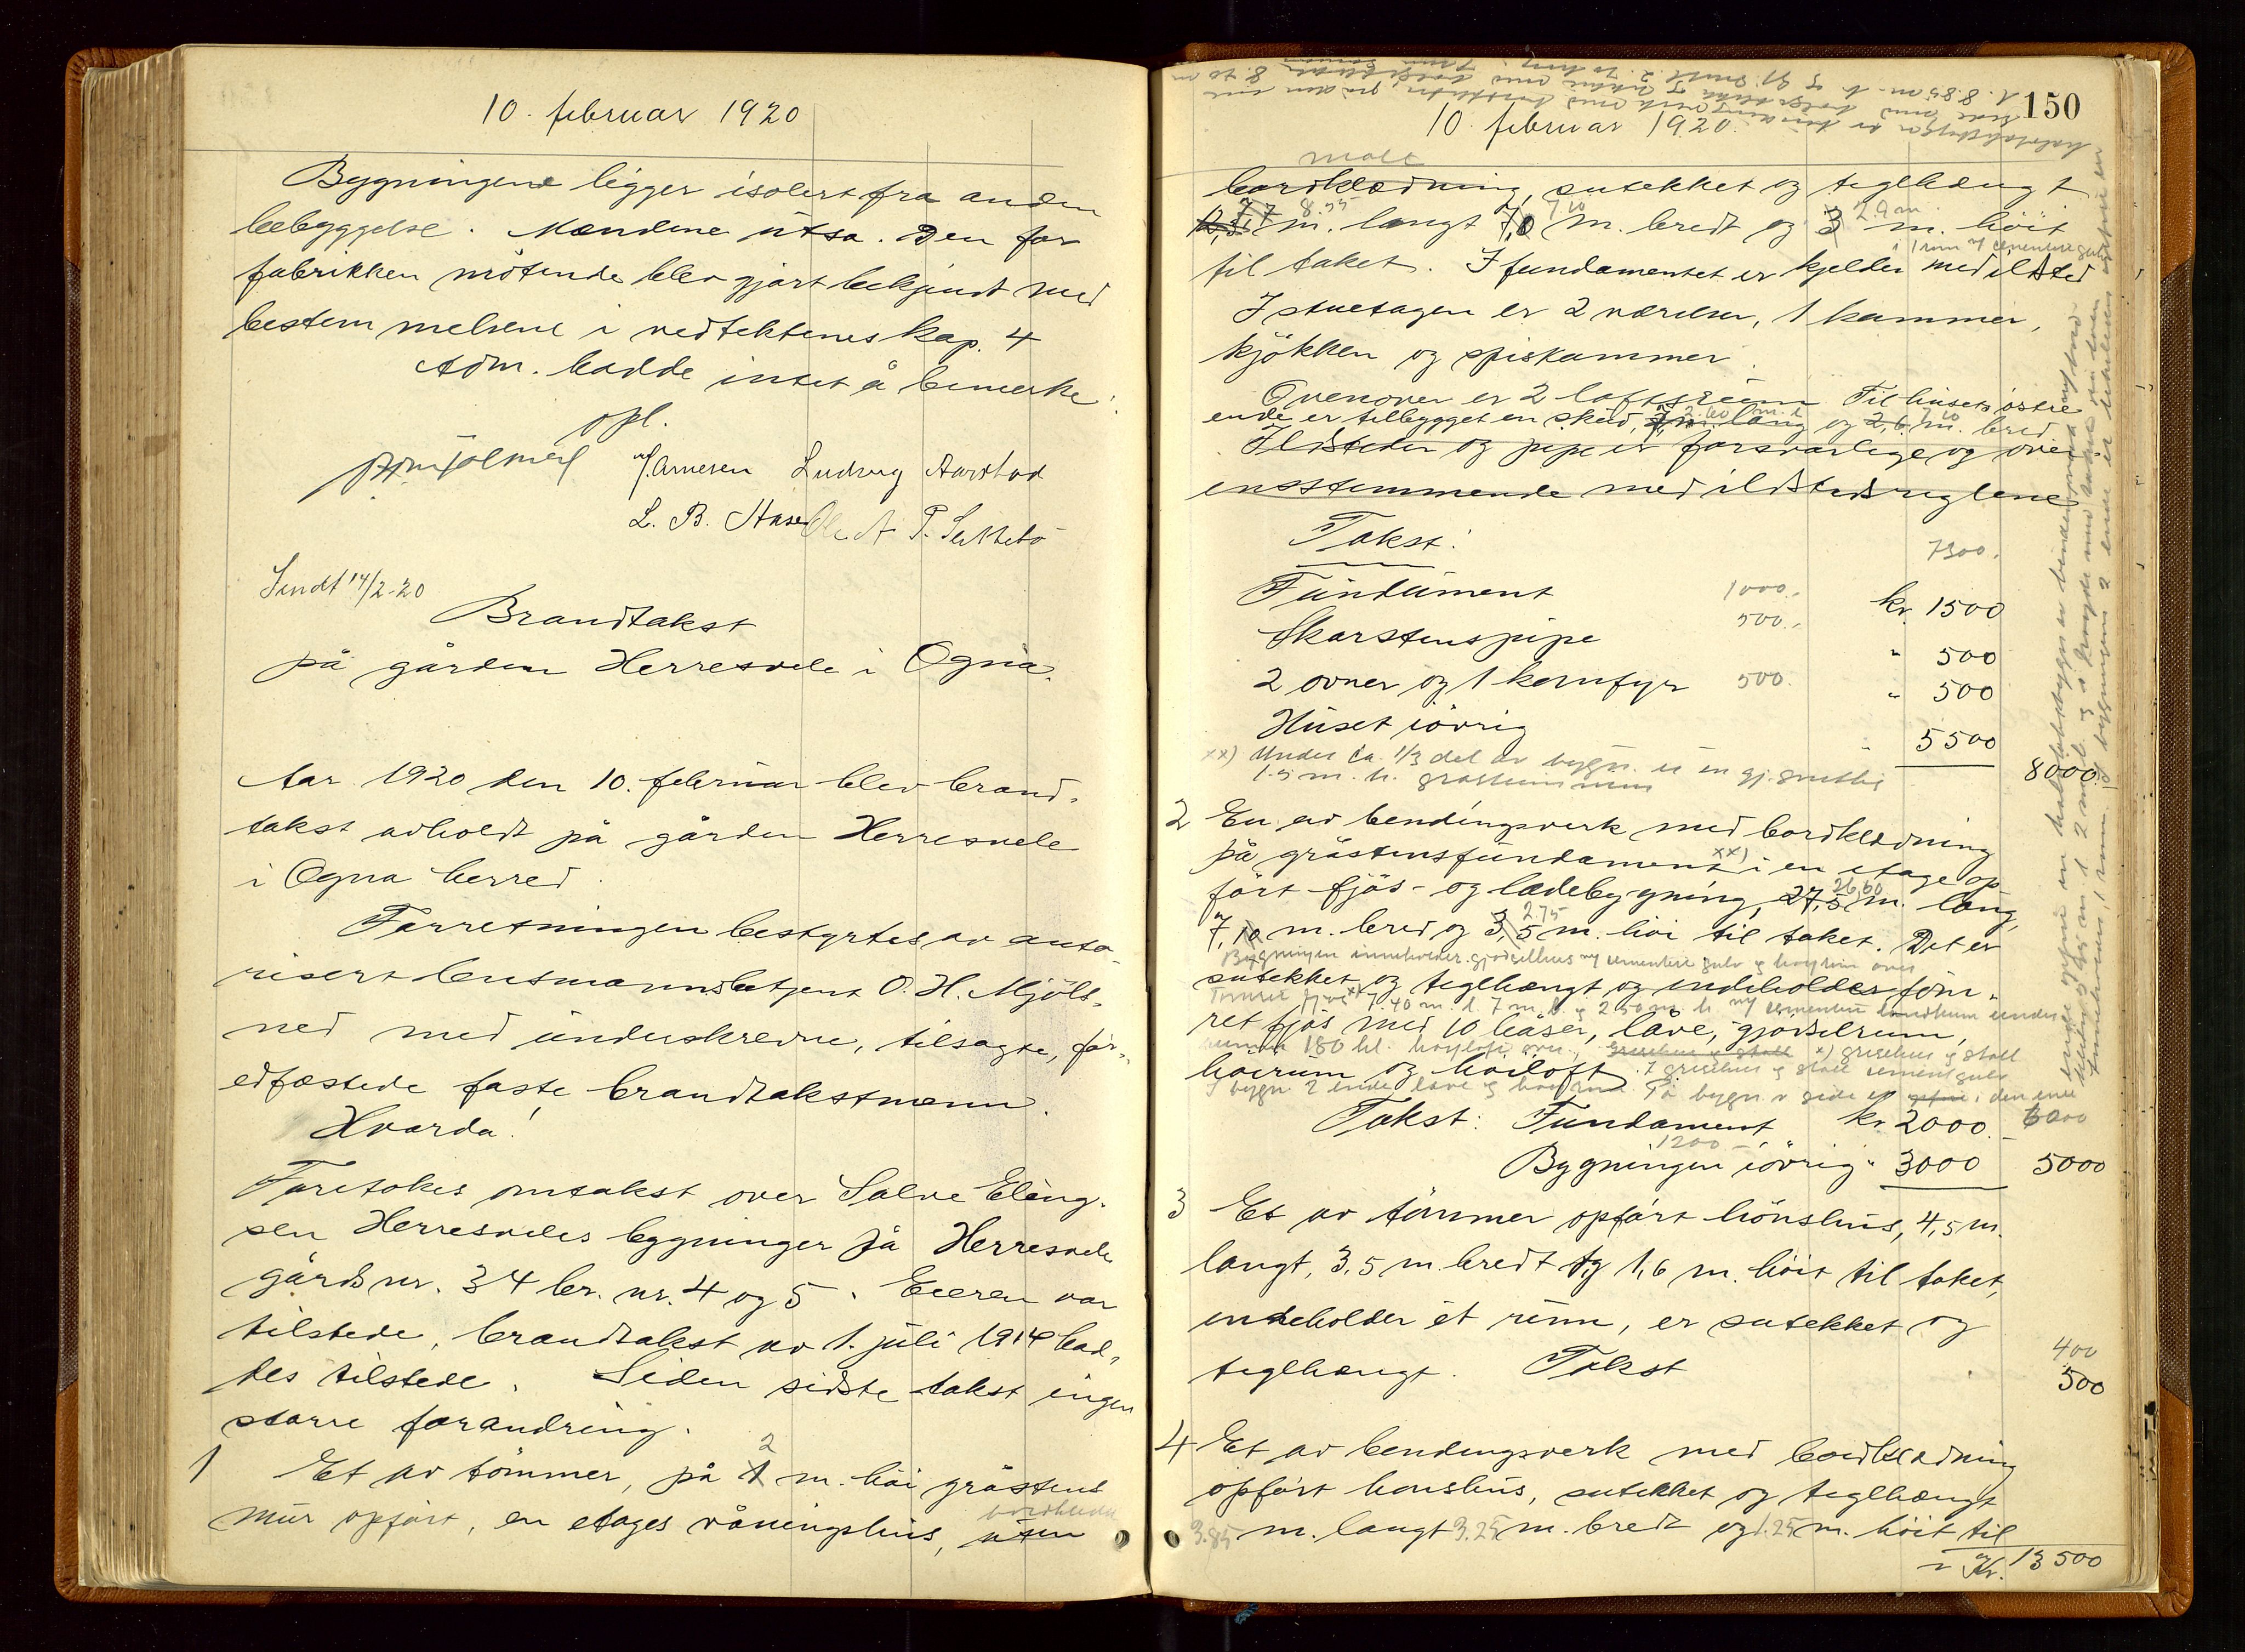 10. februar 1920
Bygningene ligger isolert fra anden
bebyggelse. Mændene utsa. Den for
fabrikken mötende blev gjort bekjendt med
bestemmelsene i vedtektenes kap. 4
Adm. hadde intet å bemerke.
opl.
Arnesen Ludvig Aarstad
L. B. Ole A T.
Sendt 14/2-20
Brandtakst
på gården Herresvele i Ogna.
Aar 1920 den 10. februar blev brand-
takst avholdt på gården Herresvele
i Ogna herred.
Forretningen bestyrtes av auto-
risert lensmannsbetjent O. H. Mjöls-
ned med underskrevne, tilsagte, for-
edfæstede faste brandtakstmænn.
Hvorda!
Foretokes omtakst over Salve Eling-
sen Herresveles bygninger på Herresvele
gårds nr. 34 br. nr. 4 og 5. Eieren var
tilstede, brandtakst av 1. juli 1914 had-
des tilstede. Siden sidste takst ingen
större forandring.
1 Et av tömmer, på 1 2 m. höi gråstens
mur opfört, en etages våningshus, uten
150
10. februar 1920.
malt
bordklædning, sutekket og teglhængt
7,7 8.55 m. langt 7,0 7.10 m. bredt og 3 2.9 m. höit
i 1 rum m/ cementert gulv
til taket. I fundamentet er kjelder med ildsted
I stuetagen er 2 værelser, 1 kammer,
kjökken og spiskammer.
Ovenover er 2 loftsrum Til husets östre
ende er tilbygget en skut, 2.60 m. l. lang og 2,6 m. bred
Ildsteder og pipe er forsvarlige og over-
ensstemmende med ildstedsreglene
Takst: 7300.
Fundament 1000.- kr. 1500
Skorstenspipe 500.- " 500
2 ovner og 1 komfyr 500. " 500
Huset iövrig " 5500
8000
xx) Under ca. 1/3 del av bygn. er en gj.snitlig
1.5 m. h. gråstensmur
2 En av bendingsverk med bordklædning
på gråstensfundament xx) i en etage op-
fört fjös- og lædebygning, 27,5 26,60 m. lang,
7,10 m. bred og 3,5 2.75 m. höi til taket. Det er
Bygningen inneholder gjødselhus m/ cementert gulv og høyrum over
sutekket og teglhængt og indeholder töm-
7.40 m. l. 7 m. b. og 2.50 m. h. m/ cementert under
ret fjös med 10 båser, låve, gjödselrum,
180 hl. høyloft over, x) grisehus og stall
höirum og höiloft. I grisehus og stall cementgulv
I bygn. 2 ende låve og høyrum. På bygn. v side er i den ene
Takst: Fundament kr. 2000.- 6000
1200 -
Bygningen iövrig " 3000 5000
3 Et av tömmer opfört hönshus, 4,5 m.
langt, 3,5 m. bredt og 1,6 m. höit til taket,
indeholder et rum, er sutekket og
teglhængt. Takst
400
500
4 Et av bendingsverk med bordklædning
opfört hönshus, sutekket og teglhængt
3.85 m. langt 3.25 m. bredt og 1.25 m. höit til
Kr. 13500